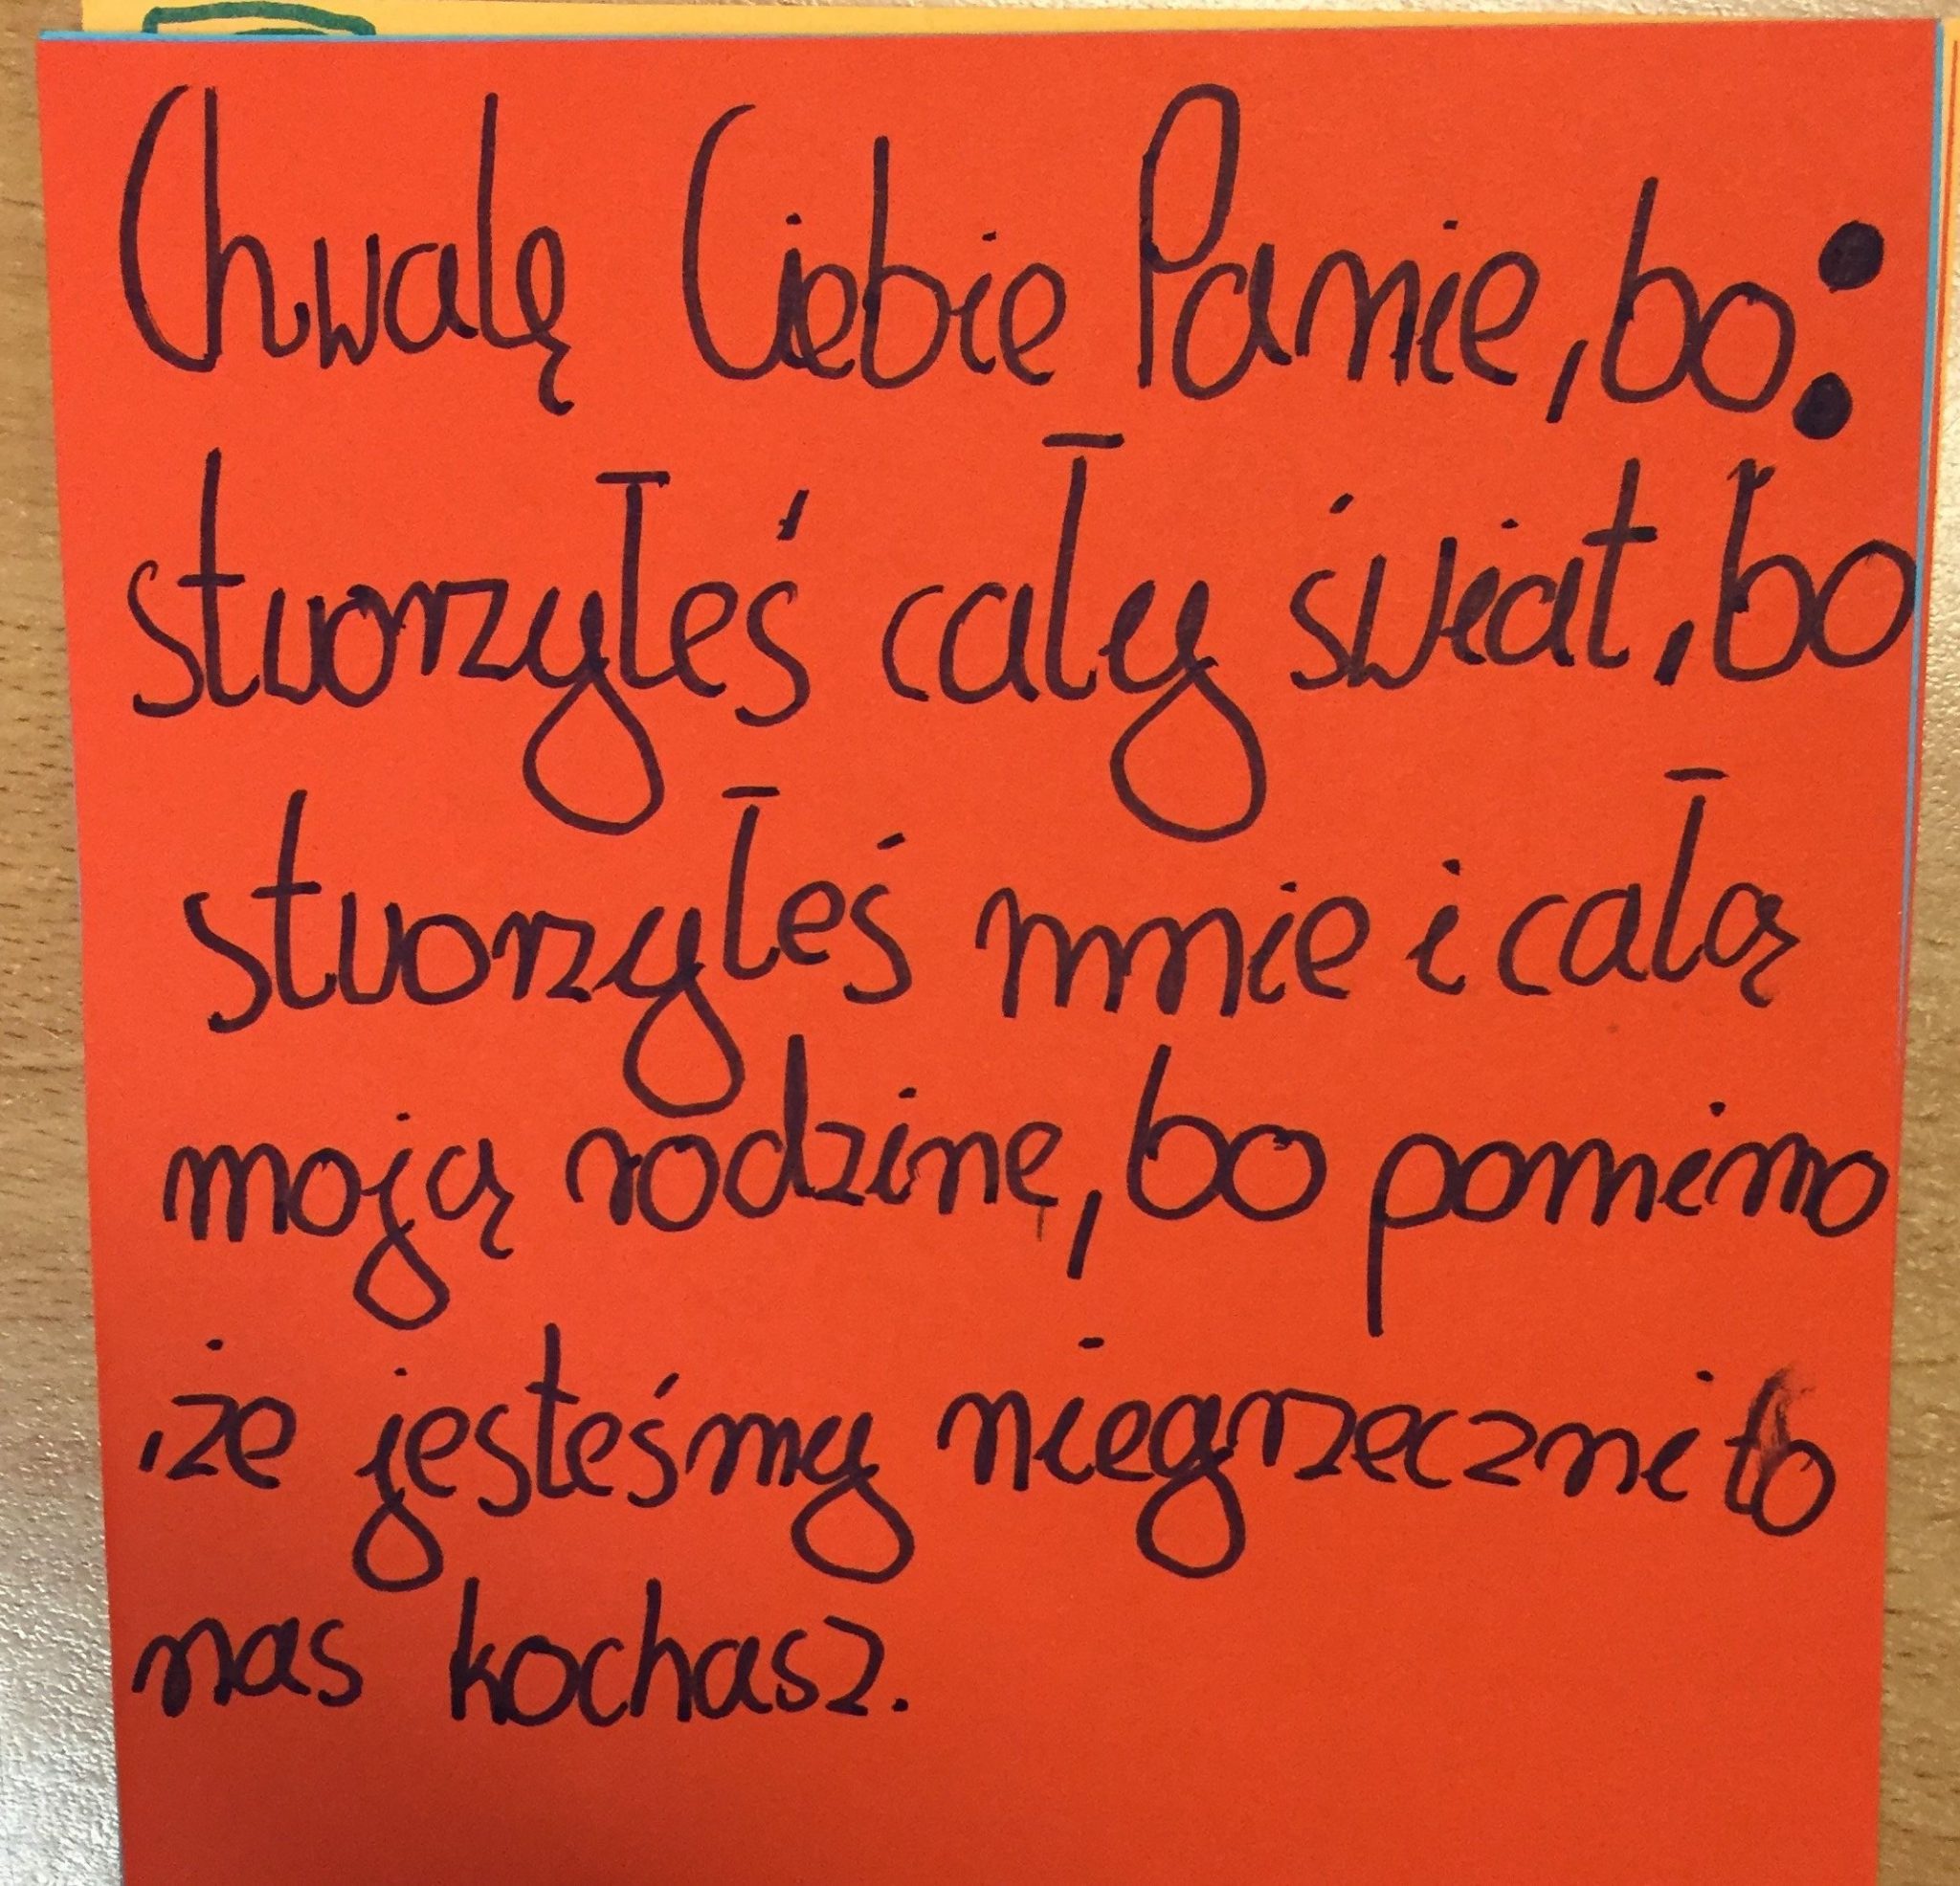 Chwalę Ciebie Panie, bo:
stworzyłeś cały świat, bo
stworzyłeś mnie i całą
moją rodzinę, bo pomimo
,że jesteśmy niegrzeczni to
nas kochasz.